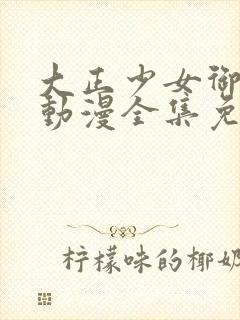 大正少女御
動漫全集免
柠檬味的椰奶